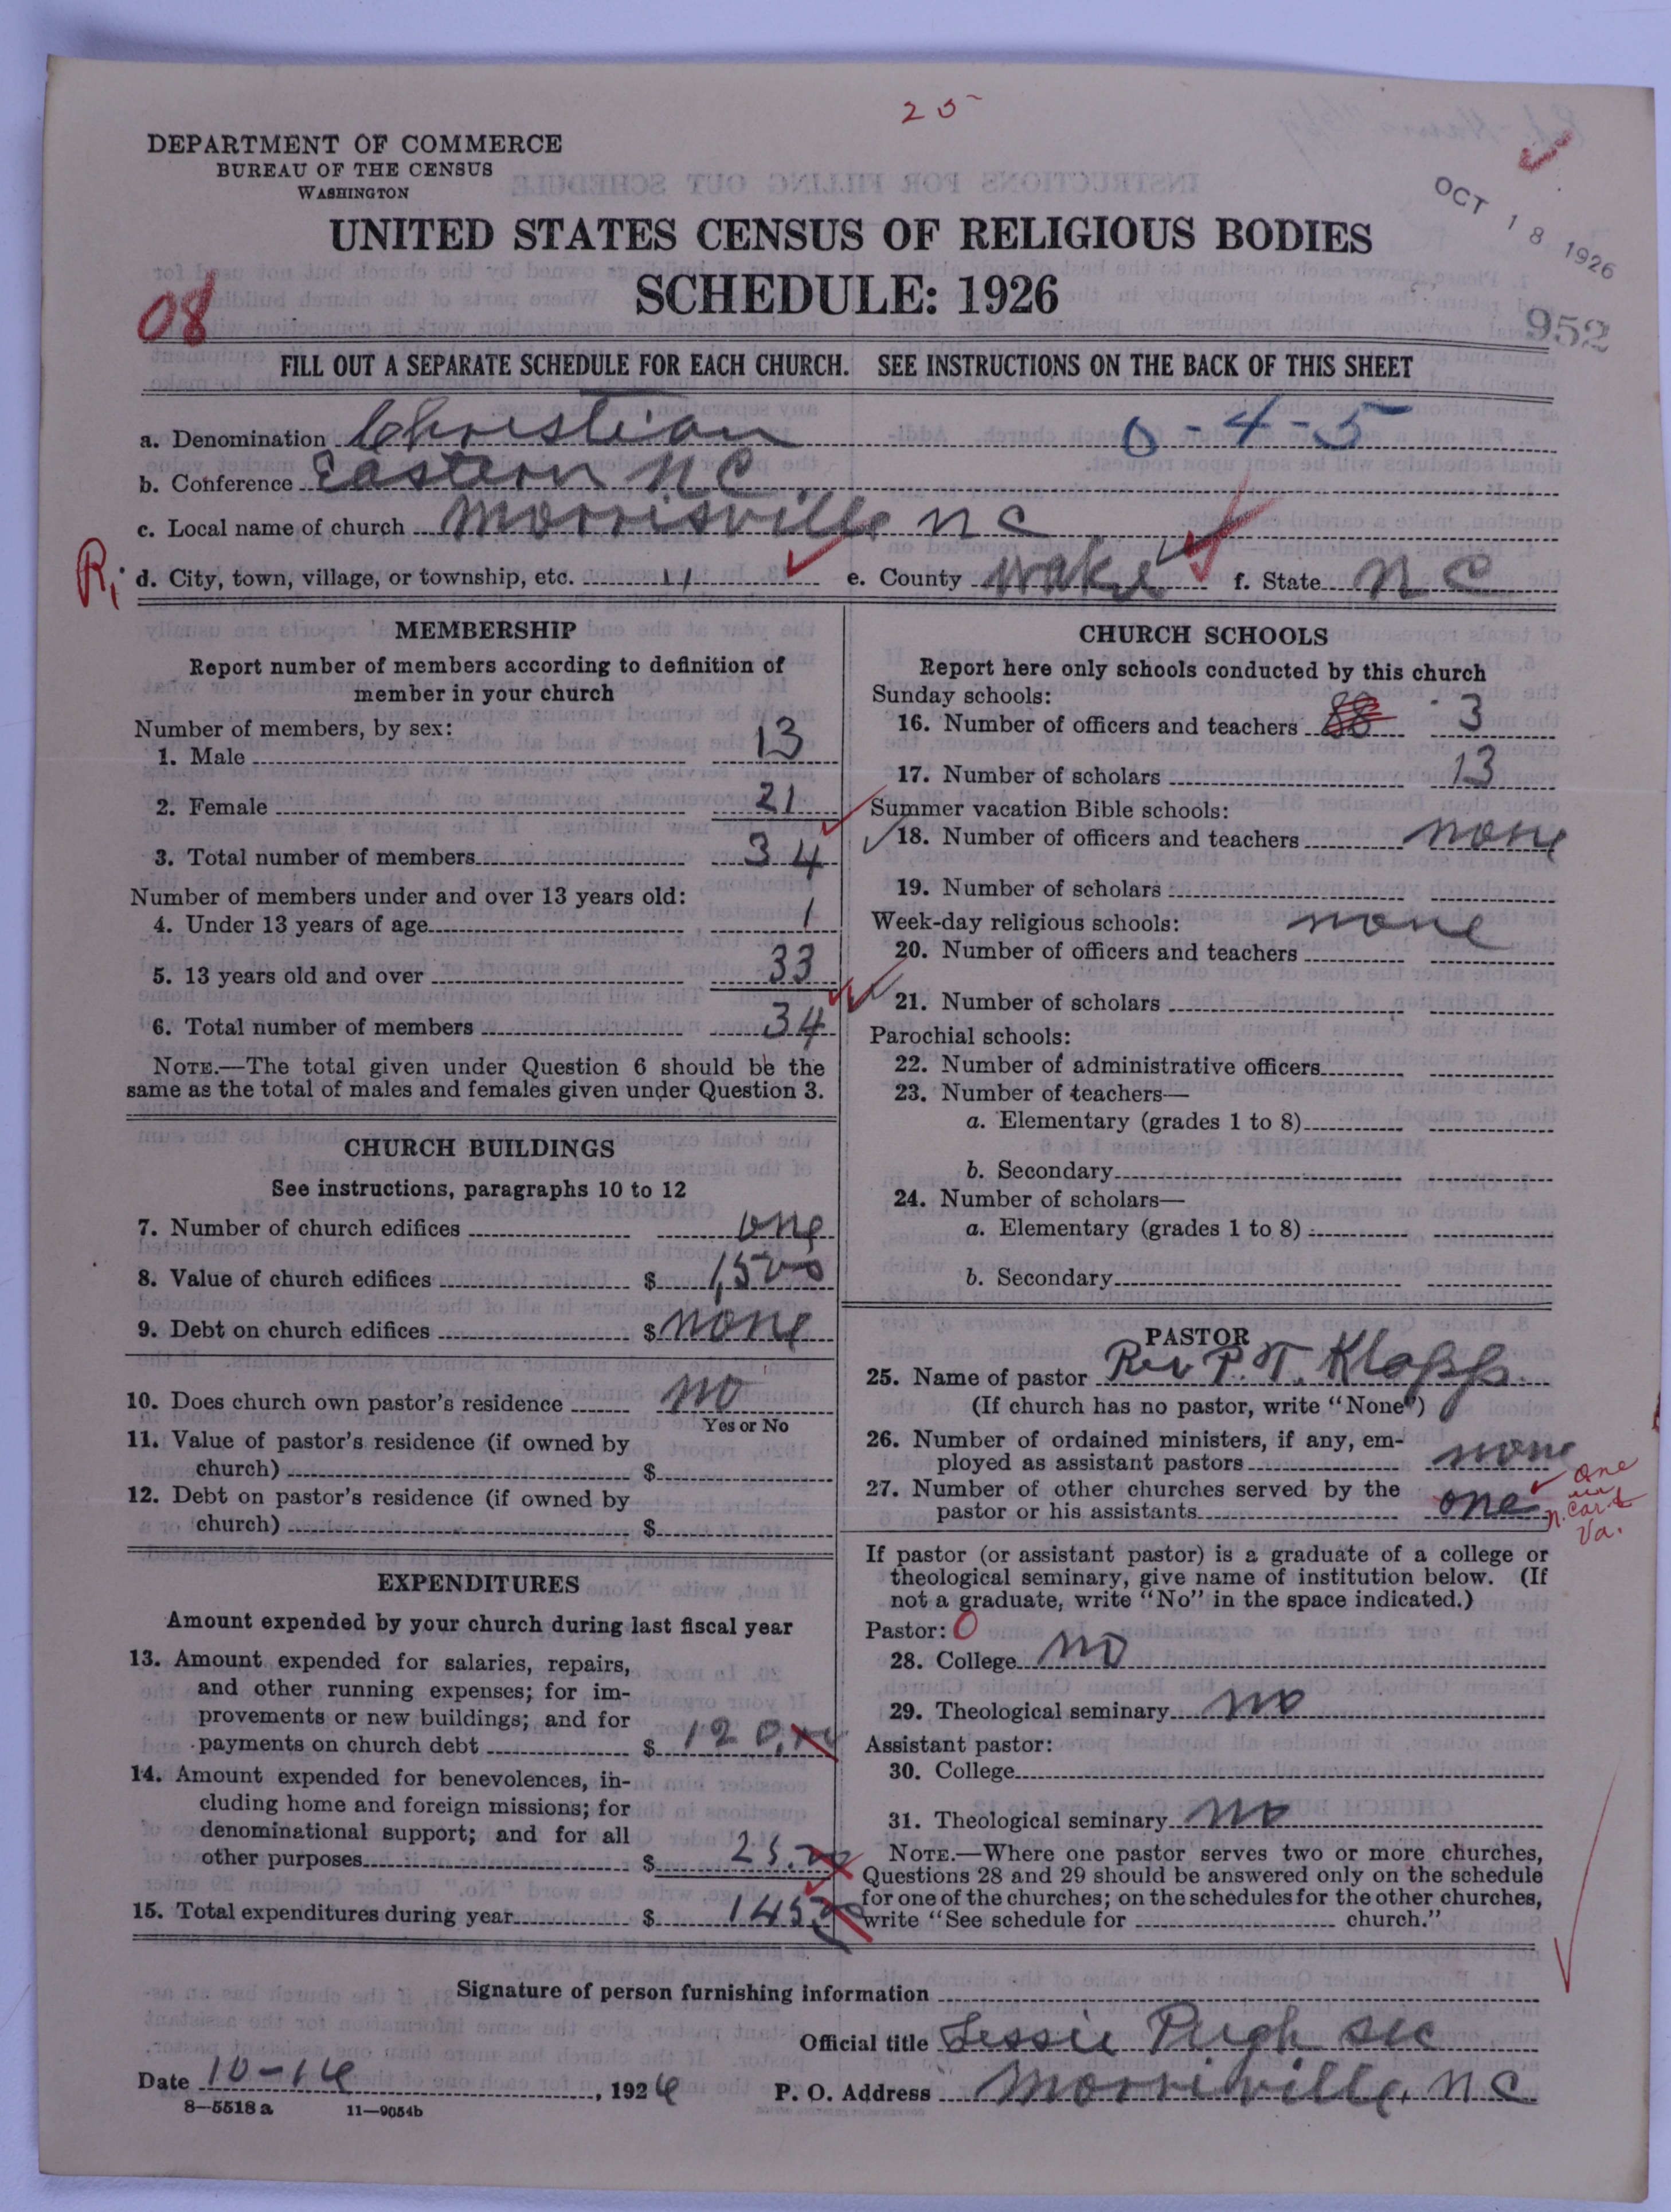 25
DEPARTMENT OF COMMERCE
BUREAU OF THE CENSUS
WASHINGTON
OCT 18 1926
UNITED STATES CENSUS OF RELIGIOUS BODIES
SCHEDULE: 1926
08
952
FILL OUT A SEPARATE SCHEDULE FOR EACH CHURCH. SEE INSTRUCTIONS ON THE BACK OF THIS SHEET
a. Denomination Christian 0-4-5
b. Conference Eastern N C
c. Local name of church Morrisville N C
R, d. City, town, village, or township, etc. 11 e. County Wake f. State N C
MEMBERSHIP
Report number of members according to definition of
member in your church
Number of members, by sex:
1. Male 13
2. Female 21
3. Total number of members 34
Number of members under and over 13 years old:
4. Under 13 years of age 1
5. 13 years old and over 33
6. Total number of members 34
NOTE.—The total given under Question 6 should be the
same as the total of males and females given under Question 3.
CHURCH BUILDINGS
See instructions, paragraphs 10 to 12
7. Number of church edifices one
8. Value of church edifices $ 1,500
9. Debt on church edifices $ none
10. Does church own pastor's residence no
Yes or No
11. Value of pastor's residence (if owned by
church) $
12. Debt on pastor's residence (if owned by
church) $
EXPENDITURES
Amount expended by your church during last fiscal year
13. Amount expended for salaries, repairs,
and other running expenses; for im-
provements or new buildings; and for
payments on church debt $ 120.00
14. Amount expended for benevolences, in-
cluding home and foreign missions; for
denominational support; and for all
other purposes $ 25.00
15. Total expenditures during year $ 145.00
CHURCH SCHOOLS
Report here only schools conducted by this church
Sunday schools:
16. Number of officers and teachers 88 3
17. Number of scholars 13
Summer vacation Bible schools:
18. Number of officers and teachers none
19. Number of scholars
Week-day religious schools: none
20. Number of officers and teachers
21. Number of scholars
Parochial schools:
22. Number of administrative officers
23. Number of teachers—
a. Elementary (grades 1 to 8)
b. Secondary
24. Number of scholars—
a. Elementary (grades 1 to 8)
b. Secondary
PASTOR
25. Name of pastor Rev P. T. Klapp
(If church has no pastor, write "None")
26. Number of ordained ministers, if any, em-
ployed as assistant pastors none
27. Number of other churches served by the
pastor or his assistants one
one
in
N. Car. &
Va.
If pastor (or assistant pastor) is a graduate of a college or
theological seminary, give name of institution below. (If
not a graduate, write "No" in the space indicated.)
Pastor: 0
28. College no
29. Theological seminary no
Assistant pastor:
30. College
31. Theological seminary no
NOTE.—Where one pastor serves two or more churches,
Questions 28 and 29 should be answered only on the schedule
for one of the churches; on the schedules for the other churches,
write "See schedule for church."
Signature of person furnishing information
Official title Lessie Pugh Sec
Date 10-14, 1926 P. O. Address Morrisville, N C
8—5518 a 11—9054b